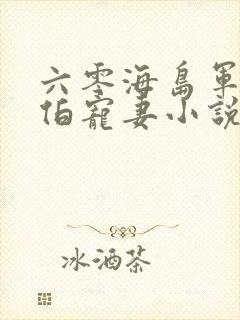 六零海島軍
伯寵妻小說
冰酒茶